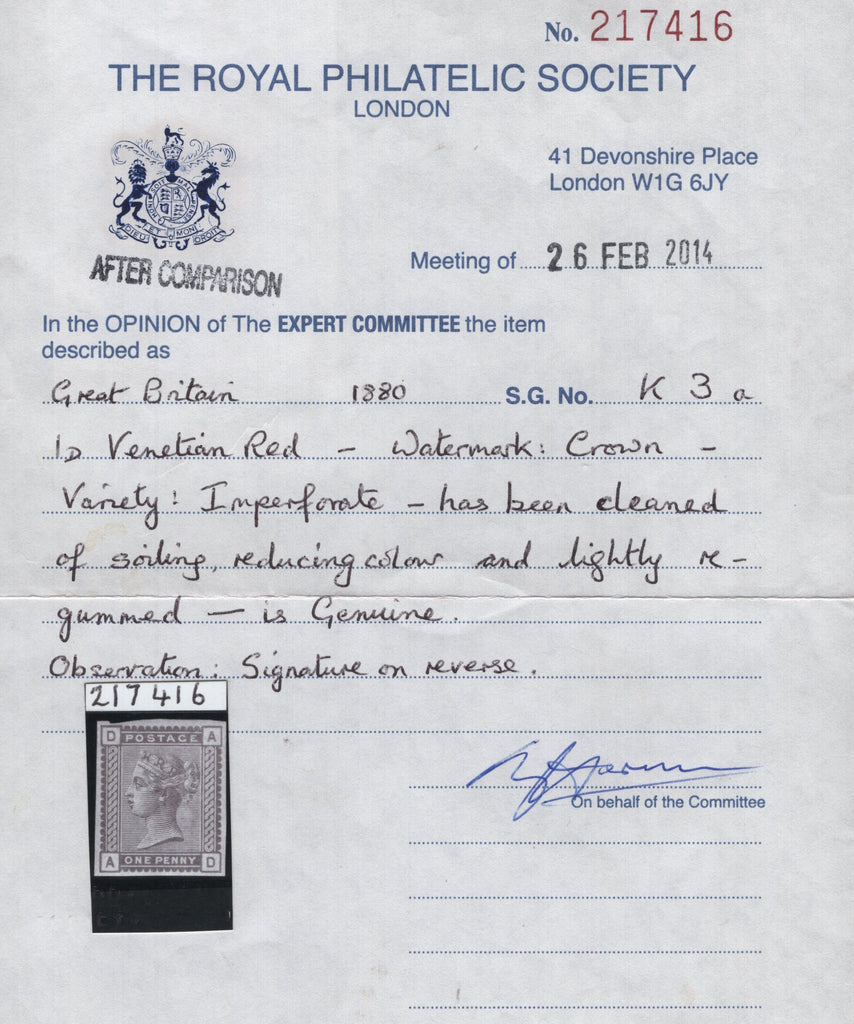 No. 217416
THE ROYAL PHILATELIC SOCIETY
LONDON
41 Devonshire Place
London W1G 6JY
DIEU ET MON DROIT
AFTER COMPARISON
Meeting of 26 FEB 2014
In the OPINION of The EXPERT COMMITTEE the item
described as
Great Britain 1880 S.G. No. K 3 a
1D Venetian Red – Watermark: Crown –
Variety: Imperforate – has been cleaned
of soiling, reducing colour and lightly re-
gummed — is Genuine.
Observation: Signature on reverse.
217416
D POSTAGE A
A ONE PENNY D
On behalf of the Committee